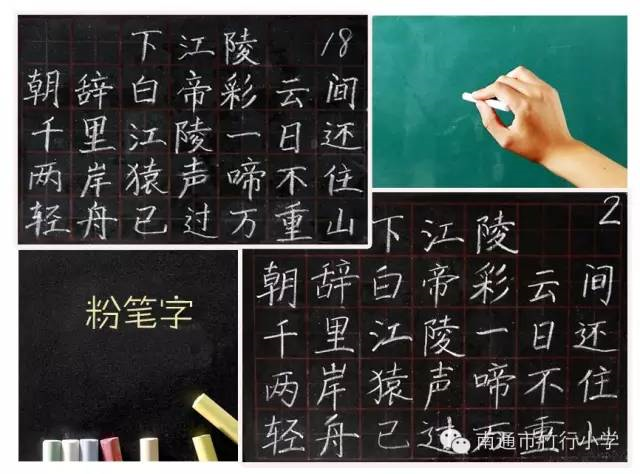 下江陵 18
朝辞白帝彩云间
千里江陵一日还
两岸猿声啼不住
轻舟已过万重山
粉笔字
下江陵 2
朝辞白帝彩云间
千里江陵一日还
两岸猿声啼不住
轻舟已过万重山
南通市竹行小学